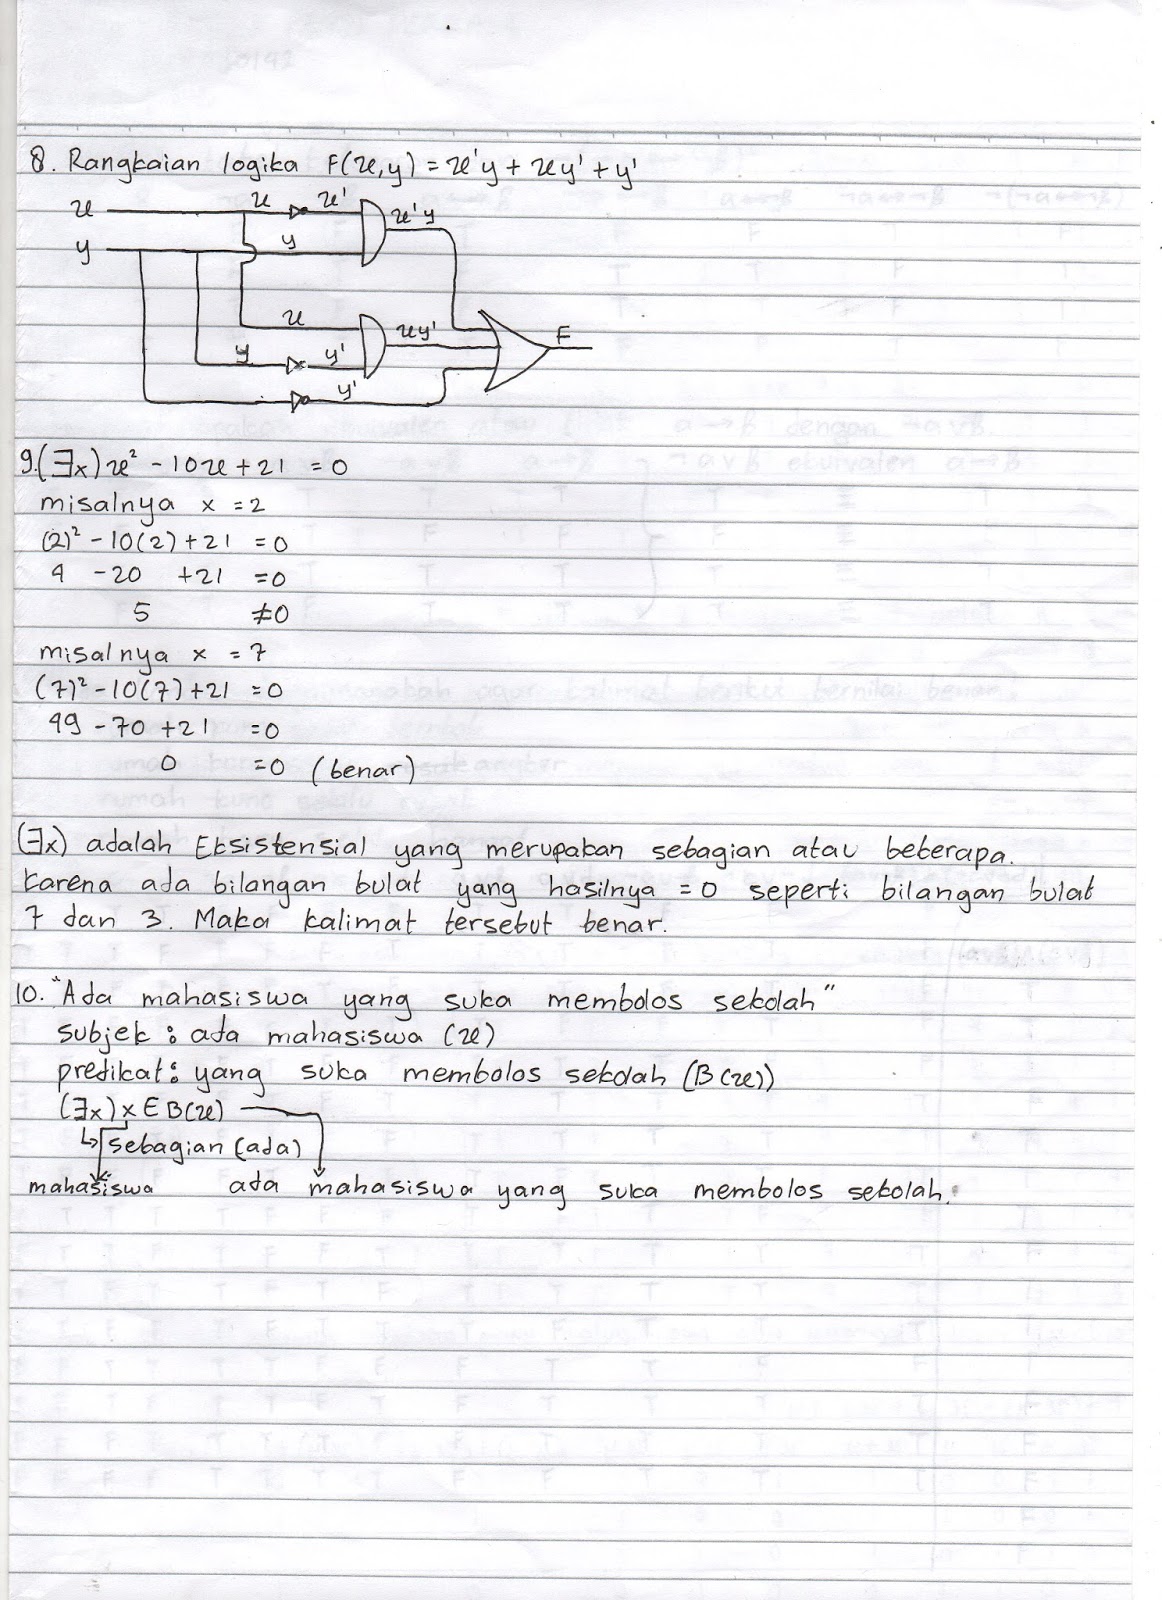 8. Rangkaian logika F(x,y) = x'y + xy' + y'
x x x' x'y
y y
x xy' F
y y'
y'
9. (∃x) x² - 10x + 21 = 0
misalnya x = 2
(2)² - 10(2) + 21 = 0
4 - 20 + 21 = 0
5 ≠ 0
misalnya x = 7
(7)² - 10(7) + 21 = 0
49 - 70 + 21 = 0
0 = 0 (benar)
(∃x) adalah Eksistensial yang merupakan sebagian atau beberapa.
karena ada bilangan bulat yang hasilnya = 0 seperti bilangan bulat
7 dan 3. Maka kalimat tersebut benar.
10. "Ada mahasiswa yang suka membolos sekolah"
subjek : ada mahasiswa (x)
predikat : yang suka membolos sekolah (B(x))
(∃x) x E B(x)
↳ sebagian (ada)
mahasiswa ada mahasiswa yang suka membolos sekolah.